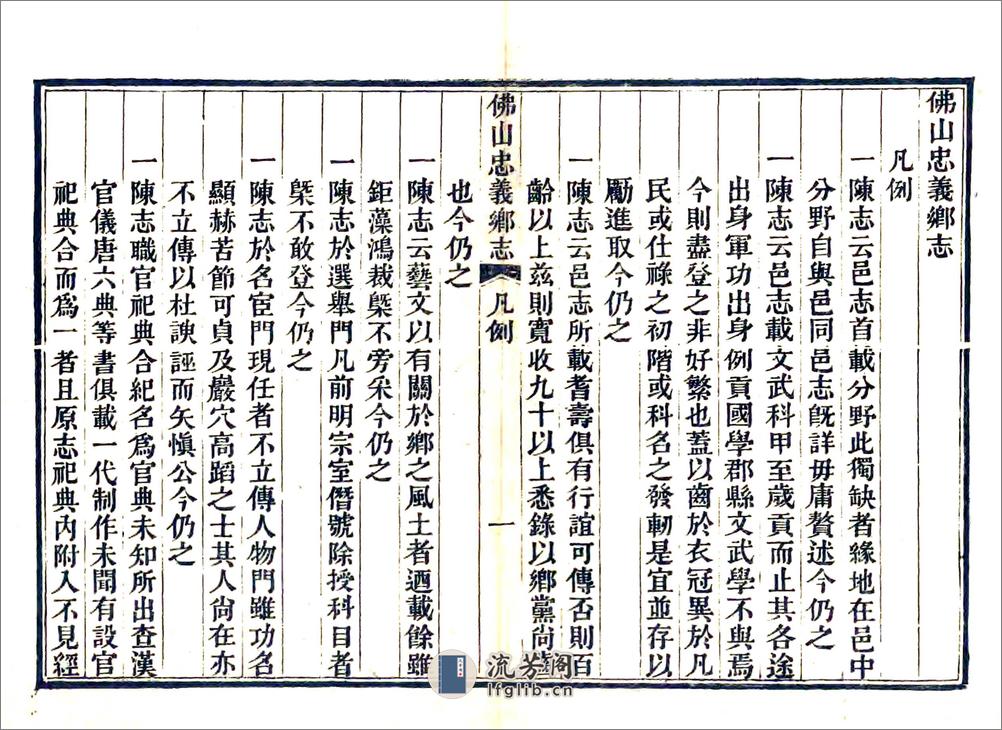 佛山忠義鄉志
凡例
一陳志云邑志首載分野此獨缺者緣地在邑中
分野自與邑同邑志旣詳毋庸贅述今仍之
一陳志云邑志載文武科甲至歲貢而止其各途
出身軍功出身例貢國學郡縣文武學不與焉
今則盡登之非好繁也蓋以齒於衣冠異於凡
民或仕祿之初階或科名之發軔是宜並存以
勵進取今仍之
一陳志云邑志所載耆壽俱有行誼可傳否則百
齡以上茲則寬收九十以上悉錄以鄉黨尚齒
佛山忠義鄉志 凡例 一
也今仍之
一陳志云藝文以有關於鄉之風土者迺載餘雖
鉅藻鴻裁槩不旁采今仍之
一陳志於選舉門凡前明宗室僭號除授科目者
槩不敢登今仍之
一陳志於名宦門現任者不立傳人物門雖功名
顯赫苦節可貞及巖穴高蹈之士其人尚在亦
不立傳以杜諛誣而矢愼公今仍之
一陳志職官祀典合紀名爲官典未知所出查漢
官儀唐六典等書俱載一代制作未聞有設官
祀典合而爲一者且原志祀典內附入不見經
流芳閣
lfglib.cn